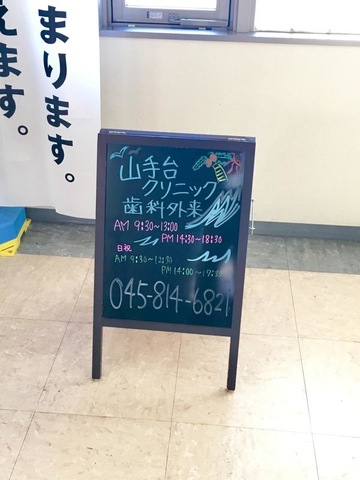 まります。
えます。
山手台
クリニック
歯科外来
AM 9:30~13:00
PM 14:30~18:30
日祝
AM 9:30~12:30
PM 14:00~17:30
045-814-6821